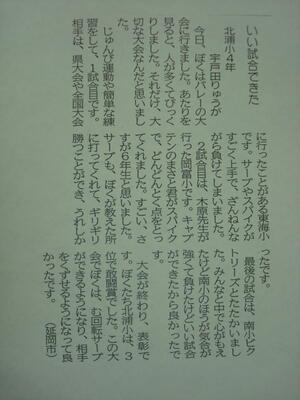 いい試合できた
北浦小4年
宇戸田りゅうが
今日、ぼくはバレーの大
会に行きました。あたりを
見ると、人が多くてびっく
りしました。それだけ、大
切な大会なんだと思いまし
た。
じゅんび運動や簡単な練
習をして、1試合目です。
相手は、県大会や全国大会
に行ったことがある東海小
です。サーブやスパイクが
すごく上手で、ざんねんな
がら負けてしまいました。
2試合目は、木原先生が
行った岡富小です。キャプ
テンのまさと君がスパイク
で、どんどんとく点をとっ
てくれました。すごい、さ
すが6年生と思いました。
サーブも、ぼくが教えた所
に打ってくれて、ギリギリ
勝つことができ、うれしか
ったです。
最後の試合は、南小ビク
トリーズとたたかいまし
た。みんなと中で心がもえ
たけど南小のほうが気合が
強くて負けたけどいい試合
ができたから良かったで
す。
大会が終わり、表彰で
す。ぼくたち北浦小は、3
位で敢闘賞でした。この大
会でぼくは、む回転サーブ
ができるようになり、相手
をくずせるようになって良
かったです。
(延岡市)